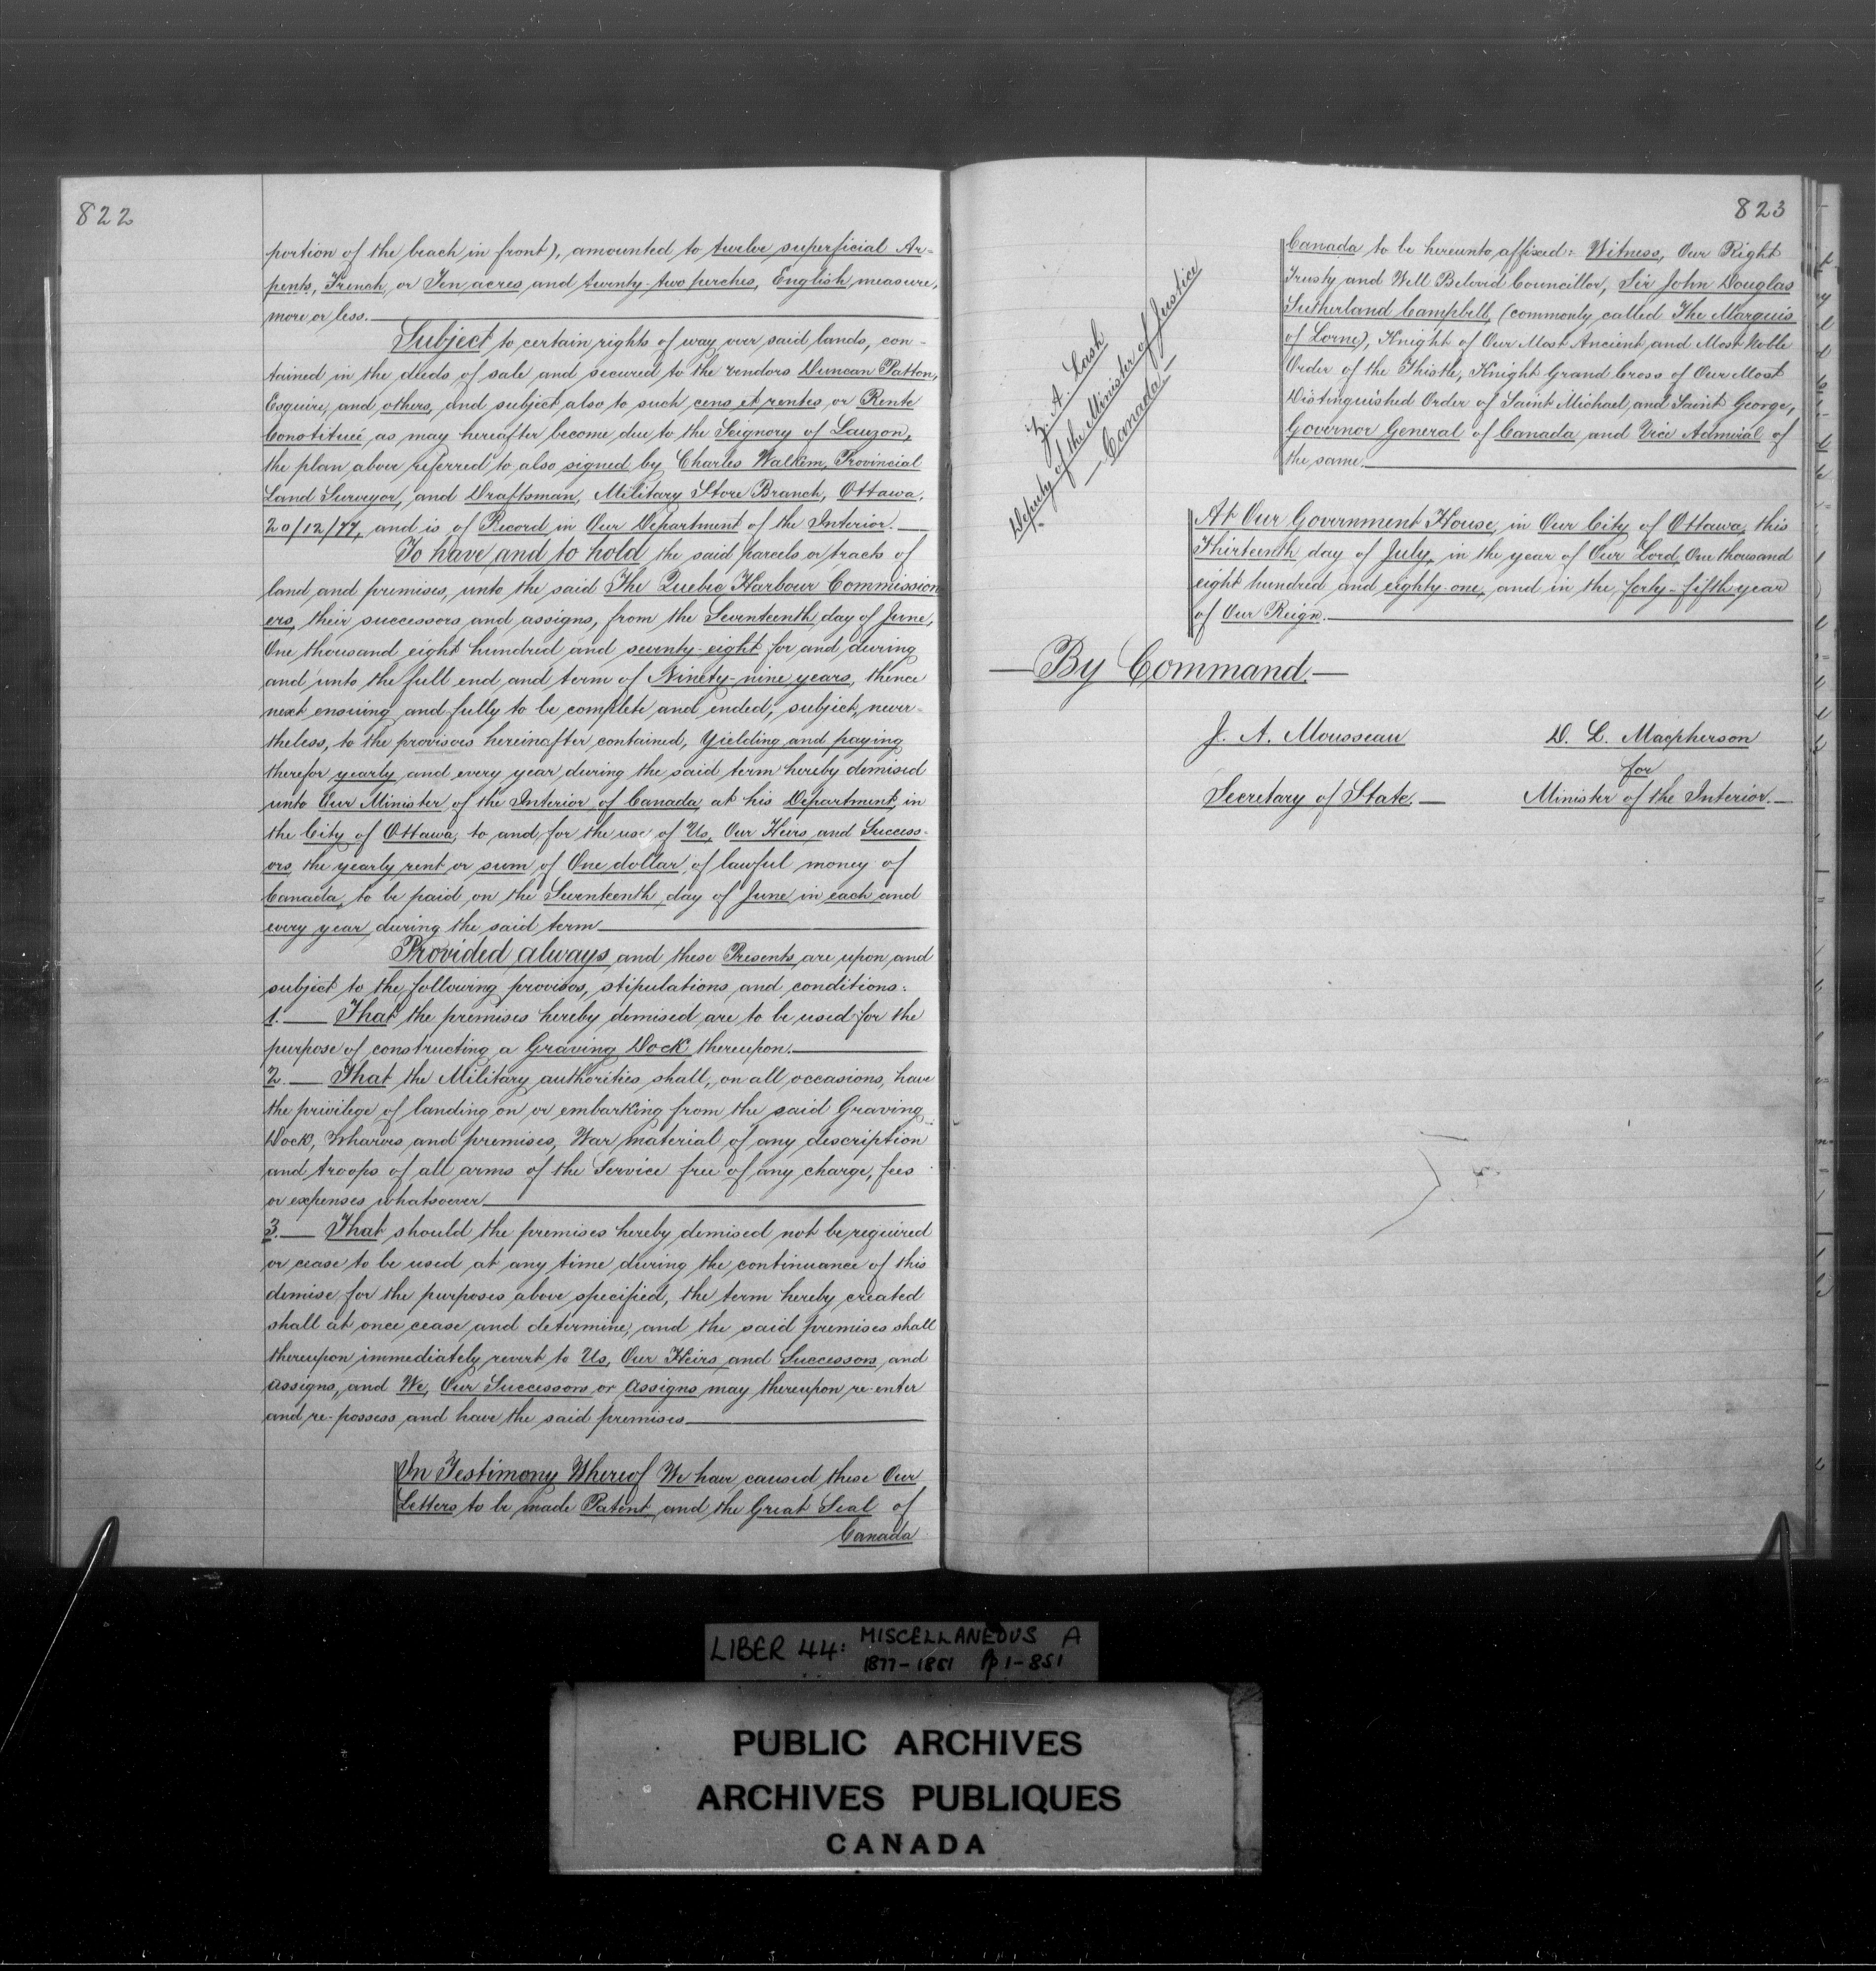 822
portion of the beach in front), amounted to twelve superficial Ar-
pents, French, or Ten acres and twenty-two perches, English measure,
more or less.
Subject to certain rights of way over said lands, con-
tained in the deeds of sale and secured to the vendors Duncan Patton,
Esquire, and others, and subject also to such cens et rentes, or Rente
Constituée, as may hereafter become due to the Seignory of Lauzon,
the plan above referred to also signed by Charles Walkem, Provincial
Land Surveyor, and Draftsman, Military Store Branch, Ottawa,
20/12/77, and is of Record in Our Department of the Interior.
To have and to hold the said parcels or tracts of
land and premises, unto the said The Quebec Harbour Commission
ers, their successors and assigns, from the Seventeenth day of June,
One thousand eight hundred and seventy-eight for and during
and unto the full end and term of Ninety-nine years, thence
next ensuing and fully to be complete and ended, subject, never-
theless, to the provisoes hereinafter contained, yielding and paying
therefor yearly and every year during the said term hereby demised
unto Our Minister of the Interior of Canada, at his Department, in
the City of Ottawa, to and for the use of Us, Our Heirs and Success-
ors, the yearly rent or sum of One dollar, of lawful money of
Canada, to be paid on the Seventeenth day of June in each and
every year during the said term
Provided always and these Presents are upon and
subject to the following provisos, stipulations and conditions:
1. — That the premises hereby demised are to be used for the
purpose of constructing a Graving Dock thereupon.
2. — That the Military authorities shall, on all occasions, have
the privilege of landing on or embarking from the said Graving
Dock, wharves and premises, War material of any description
and troops of all arms of the Service free of any charge, fees
or expenses whatsoever
3. — That should the premises hereby demised not be required
or cease to be used at any time during the continuance of this
demise for the purposes above specified, the term hereby created
shall at once cease and determine, and the said premises shall
thereupon immediately revert to Us, Our Heirs and Successors, and
assigns, and We, Our Successors or assigns may thereupon re-enter
and re-possess and have the said premises
In Testimony Whereof We have caused these Our
Letters to be made Patent, and the Great Seal of
Canada
823
Canada to be hereunto affixed: Witness, Our Right
Trusty and Well Beloved Councillor, Sir John Douglas
Sutherland Campbell, (commonly called The Marquis
of Lorne), Knight of Our Most Ancient and Most Noble
Order of the Thistle, Knight Grand Cross of Our Most
Distinguished Order of Saint Michael and Saint George,
Governor General of Canada and Vice Admiral of
the same.
Z. A. Lash
Deputy of the Minister of Justice
— Canada —
At Our Government House, in Our City of Ottawa, this
Thirteenth day of July, in the year of Our Lord, One thousand
eight hundred and eighty-one, and in the forty-fifth year
of Our Reign.
— By Command. —
J. A. Mousseau D. L. Macpherson
for
Secretary of State. — Minister of the Interior. —
LIBER 44: MISCELLANEOUS A
1877-1881 pp 1-851
PUBLIC ARCHIVES
ARCHIVES PUBLIQUES
CANADA